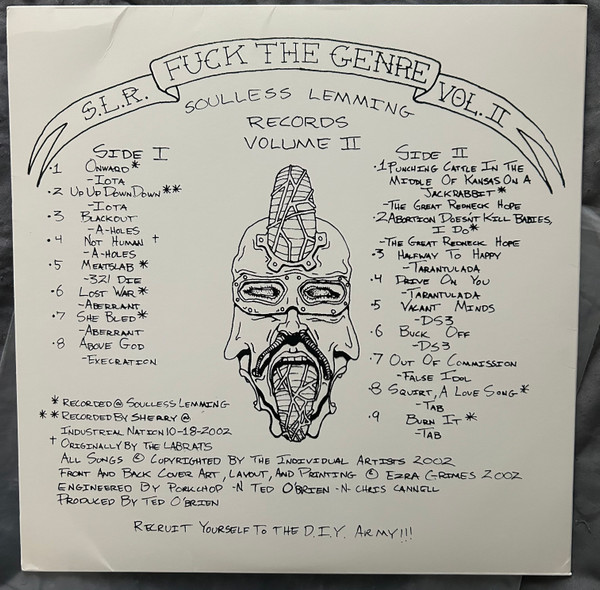 S.L.R. FUCK THE GENRE VOL. II
SOULLESS LEMMING
RECORDS
VOLUME II
SIDE I
·1 ONWARD*
-IOTA
·2 UP UP DOWN DOWN**
-IOTA
·3 BLACKOUT
-A-HOLES
·4 NOT HUMAN †
-A-HOLES
·5 MEATSLAB*
-321 DIE
·6 LOST WAR*
-ABERRANT
·7 SHE BLED*
-ABERRANT
·8 ABOVE GOD
-EXECRATION
SIDE II
·1 PUNCHING CATTLE IN THE
MIDDLE OF KANSAS ON A
JACKRABBIT*
-THE GREAT REDNECK HOPE
·2 ABORTION DOESN'T KILL BABIES,
I DO*
-THE GREAT REDNECK HOPE
·3 HALFWAY TO HAPPY
-TARANTULADA
·4 DRIVE ON YOU
-TARANTULADA
5 VACANT MINDS
-DS3
·6 BUCK OFF
-DS3
·7 OUT OF COMMISSION
-FALSE IDOL
8 SQUIRT, A LOVE SONG*
-TAB
·9 BURN IT*
-TAB
* RECORDED @ SOULLESS LEMMING
** RECORDED BY SHERRY @
INDUSTRIAL NATION 10-18-2002
† ORIGINALLY BY THE LABRATS
ALL SONGS © COPYRIGHTED BY THE INDIVIDUAL ARTISTS 2002
FRONT AND BACK COVER ART, LAYOUT, AND PRINTING © EZRA GRIMES 2002
ENGINEERED BY PORKCHOP -N- TED O'BRIEN -N- CHRIS CANNELL
PRODUCED BY TED O'BRIEN
RECRUIT YOURSELF TO THE D.I.Y. ARMY!!!